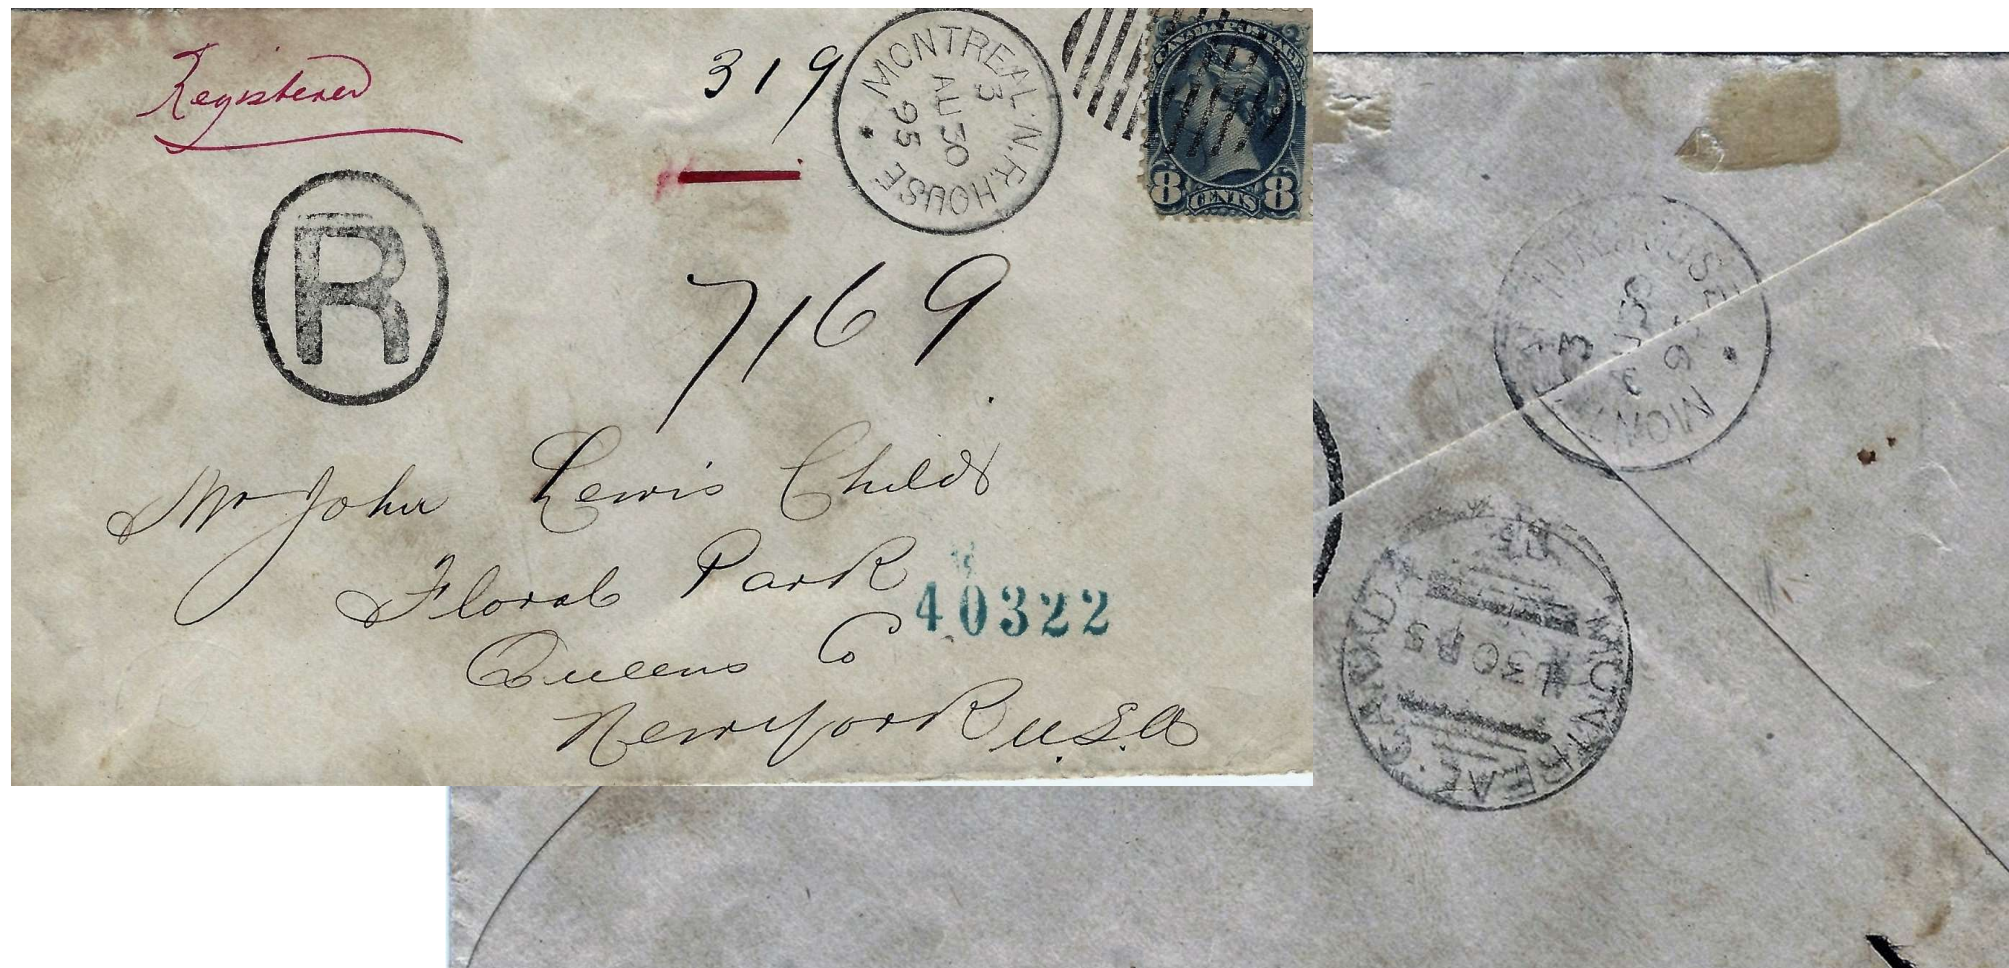 Registered
319
MONTREAL·N.R.HOUSE
3
AU 30
95
CANADA POSTAGE
8 CENTS 8
R
7169
Mr John Lewis Childs
Floral Park
40322
Queens Co
New York U.S.A
MONT
3
MONTREAL CANADA